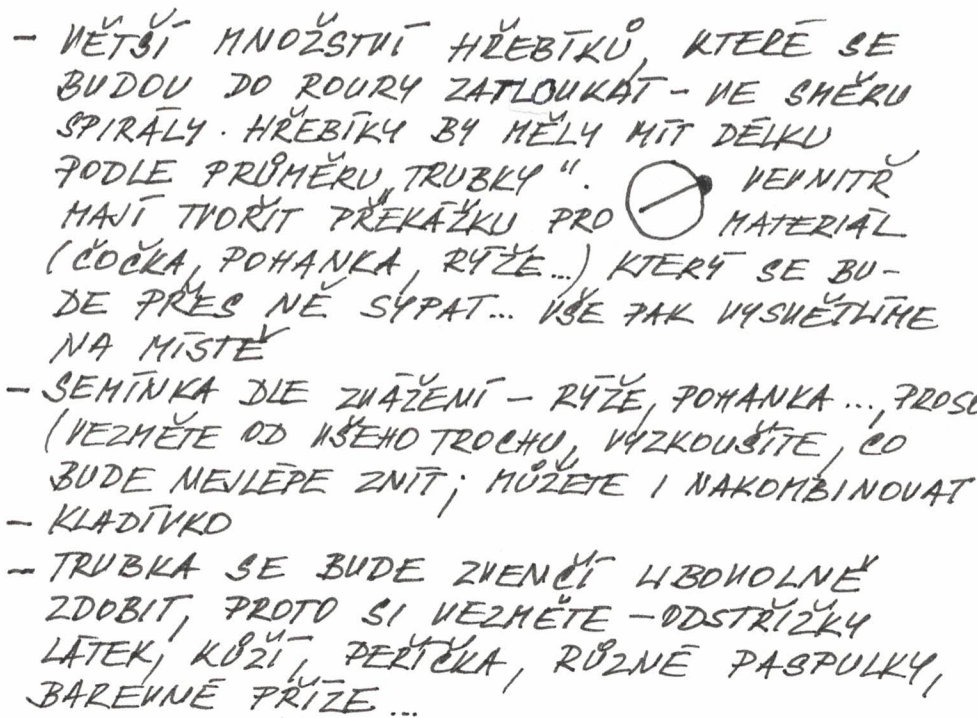 - VĚTŠÍ MNOŽSTVÍ HŘEBÍKŮ, KTERÉ SE
BUDOU DO ROURY ZATLOUKAT - VE SMĚRU
SPIRÁLY. HŘEBÍKY BY MĚLY MÍT DÉLKU
PODLE PRŮMĚRU „TRUBKY“. VEVNITŘ
MAJÍ TVOŘIT PŘEKÁŽKU PRO MATERIÁL
(ČOČKA, POHANKA, RÝŽE...) KTERÝ SE BU-
DE PŘES NĚ SYPAT... VŠE PAK VYSVĚTLÍME
NA MÍSTĚ
- SEMÍNKA DLE ZVÁŽENÍ - RÝŽE, POHANKA ..., PROSO
(VEZMĚTE OD VŠEHO TROCHU, VYZKOUŠÍTE, CO
BUDE NEJLÉPE ZNÍT; MŮŽETE I NAKOMBINOVAT
- KLADÍVKO
- TRUBKA SE BUDE ZVENČÍ LIBOVOLNĚ
ZDOBIT, PROTO SI VEZMĚTE - ODSTŘIŽKY
LÁTEK, KŮŽÍ, PEŘÍČKA, RŮZNÉ PASPULKY,
BAREVNÉ PŘÍZE ...